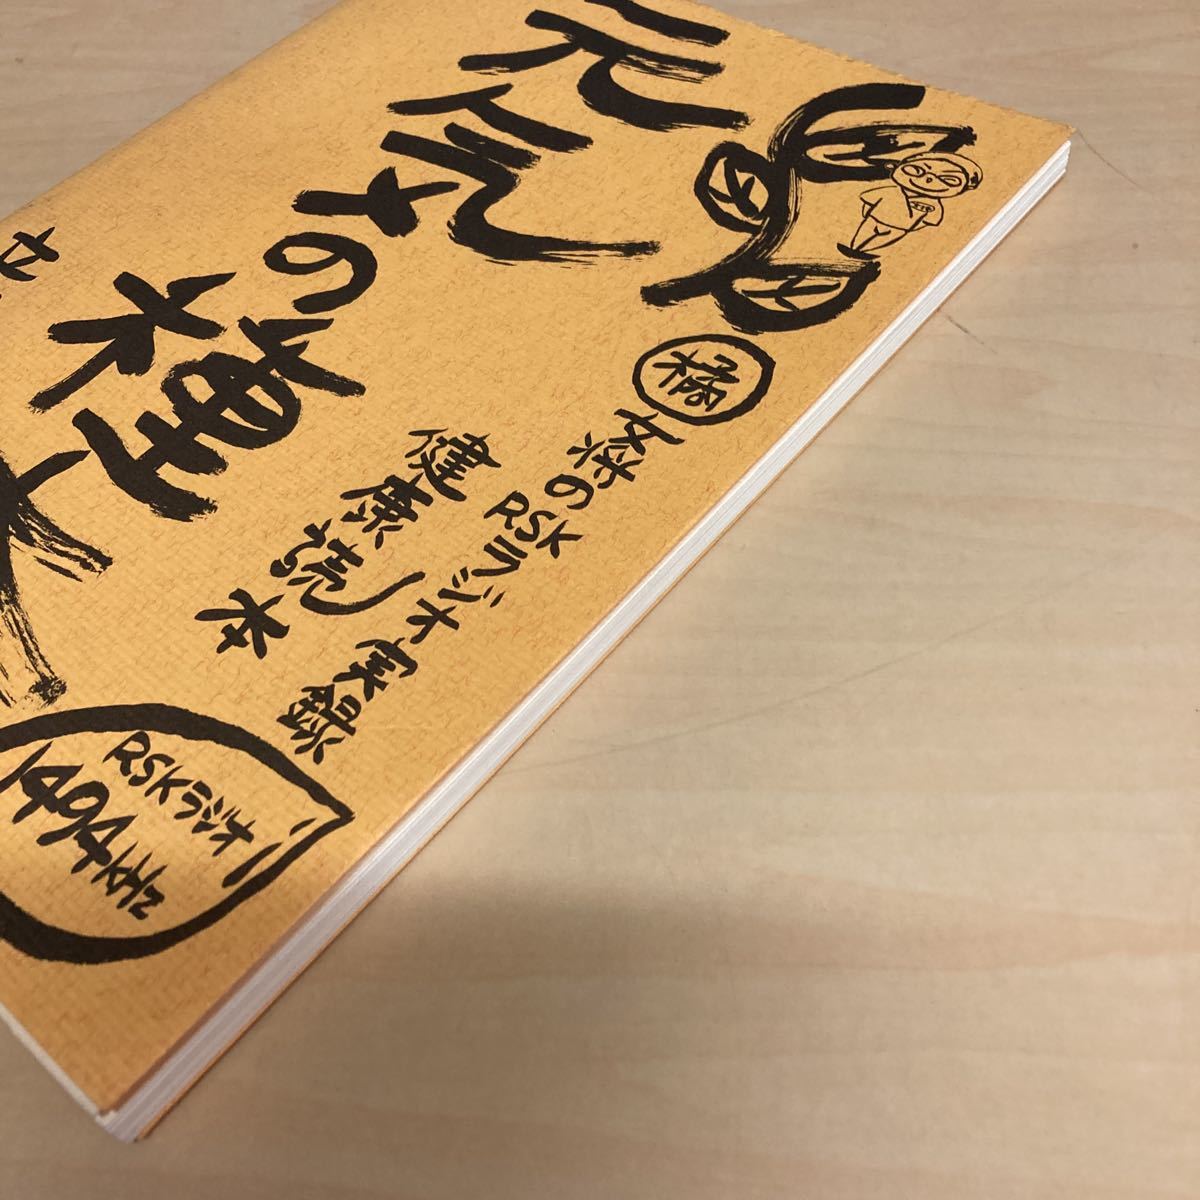 元気の種
橘
女将の
RSKラジオ実録
健康読本
RSKラジオ
1494kHz
立